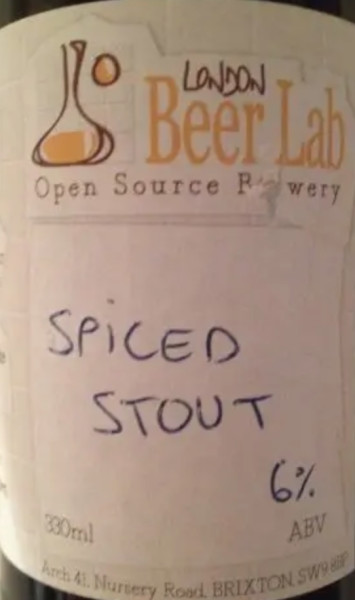 LONDON
Beer Lab
Open Source
SPICED
STOUT
6%
330ml
ABV
Arch 41, Nursery Road, BRIXTON, SW9 8BP